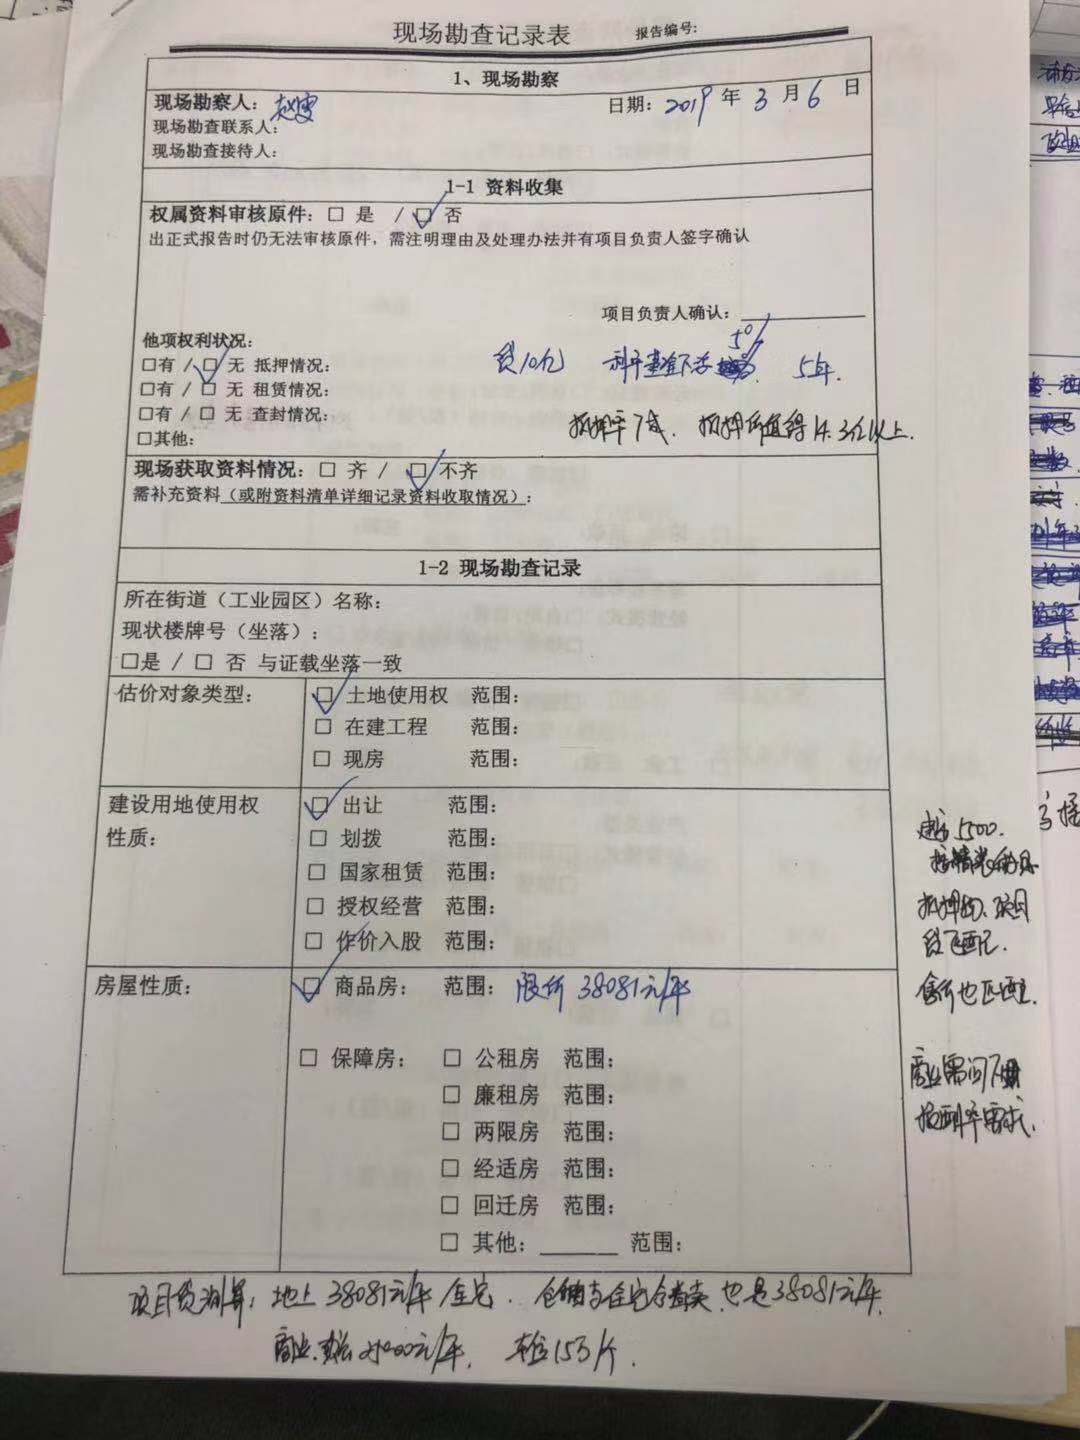 现场勘查记录表 报告编号:
1、现场勘察
现场勘察人: 赵雯 日期: 2019 年 3 月 6 日
现场勘查联系人:
现场勘查接待人:
1-1 资料收集
权属资料审核原件: □ 是 / □ 否
出正式报告时仍无法审核原件, 需注明理由及处理办法并有项目负责人签字确认
项目负责人确认:
他项权利状况:
5%
□有 / □ 无 抵押情况: 贷10亿 5年.
□有 / □ 无 租赁情况:
□有 / □ 无 查封情况:
抵押率7成. 抵押价值得14.3亿以上.
□其他:
现场获取资料情况: □ 齐 / □ 不齐
需补充资料(或附资料清单详细记录资料收取情况):
1-2 现场勘查记录
所在街道(工业园区)名称:
现状楼牌号(坐落):
□是 / □ 否 与证载坐落一致
估价对象类型: □ 土地使用权 范围:
□ 在建工程 范围:
□ 现房 范围:
建设用地使用权 □ 出让 范围:
性质: □ 划拨 范围:
□ 国家租赁 范围:
□ 授权经营 范围:
□ 作价入股 范围:
房屋性质: □ 商品房: 范围: 限价 38081元/平
□ 保障房: □ 公租房 范围:
□ 廉租房 范围:
□ 两限房 范围:
□ 经适房 范围:
□ 回迁房 范围:
□ 其他: 范围:
5500.
抵押的、项目
售价也匹配.
商业需问
需求.
项目贷测算: 地上38081元/平 住宅. 仓储与住宅合着卖, 也是38081元/平.
商业. 元/平. 车位15万/个.